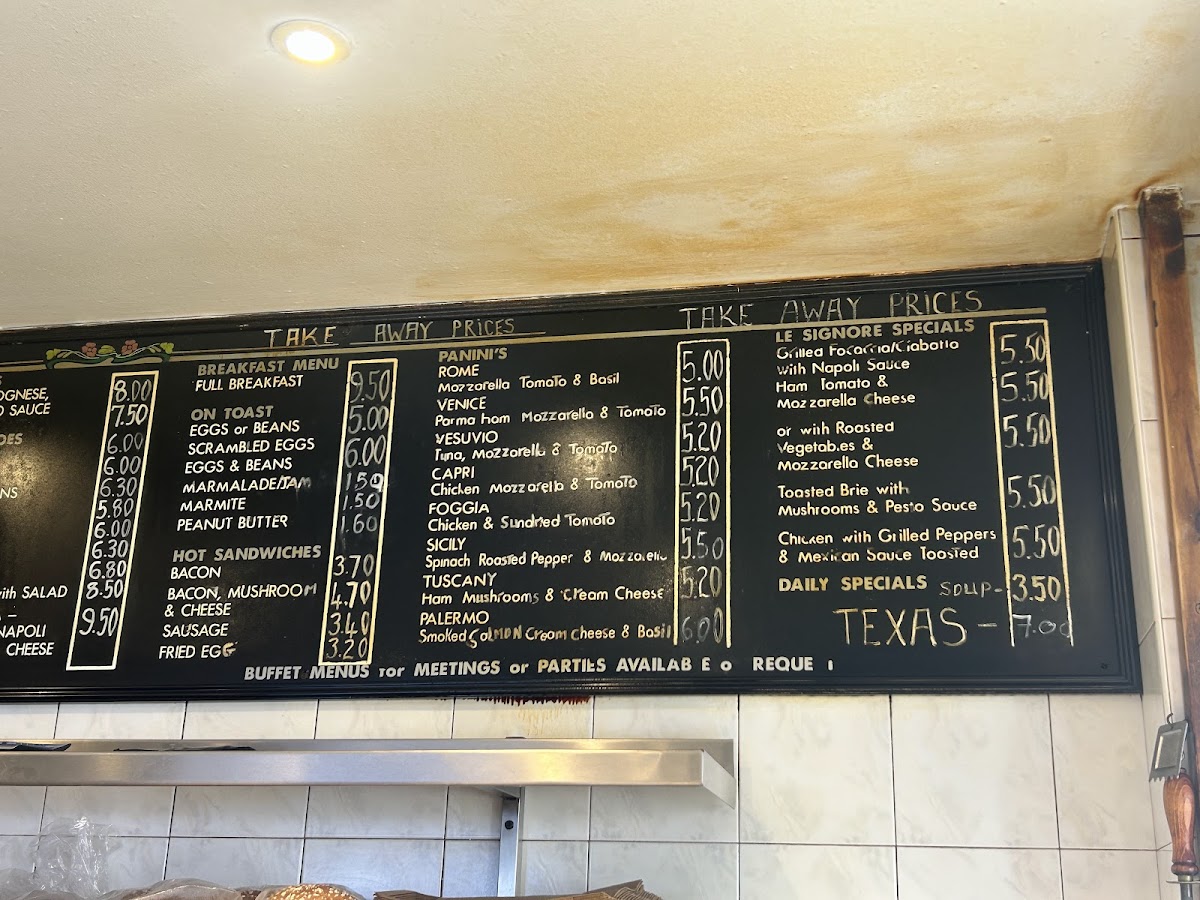 TAKE AWAY PRICES
TAKE AWAY PRICES
OGNESE,
O SAUCE
with SALAD
NAPOLI
CHEESE
8.00
7.50
6.00
6.00
6.30
5.80
6.00
6.30
6.80
8.50
9.50
BREAKFAST MENU
FULL BREAKFAST 9.50
ON TOAST
EGGS or BEANS 5.00
SCRAMBLED EGGS
EGGS & BEANS 6.00
MARMALADE/JAM 1.50
MARMITE 1.50
PEANUT BUTTER 1.60
HOT SANDWICHES
BACON 3.70
BACON, MUSHROOM 4.70
& CHEESE
SAUSAGE 3.40
FRIED EGG 3.20
PANINI'S
ROME 5.00
Mozzarella Tomato & Basil
VENICE 5.50
Parma ham Mozzarella & Tomato
VESUVIO 5.20
Tuna, Mozzarella & Tomato
CAPRI 5.20
Chicken Mozzarella & Tomato
FOGGIA 5.20
Chicken & Sundried Tomato
SICILY 5.50
Spinach Roasted Pepper & Mozzarella
TUSCANY 5.20
Ham Mushrooms & Cream Cheese
PALERMO
Smoked SALMON Cream Cheese & Basil 6.00
LE SIGNORE SPECIALS
Grilled Focaccia/Ciabatta 5.50
with Napoli Sauce
Ham Tomato & 5.50
Mozzarella Cheese
or with Roasted 5.50
Vegetables &
Mozzarella Cheese
Toasted Brie with 5.50
Mushrooms & Pesto Sauce
Chicken with Grilled Peppers 5.50
& Mexican Sauce Toasted
DAILY SPECIALS SOUP- 3.50
TEXAS - 7.00
BUFFET MENUS for MEETINGS or PARTIES AVAILAB E o REQUE